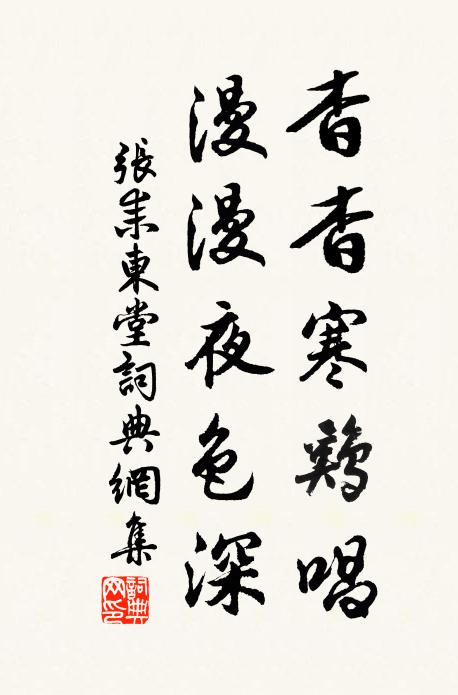 杳杳寒鷄唱
漫漫夜色深
張耒東堂詞典網集
詞典网印